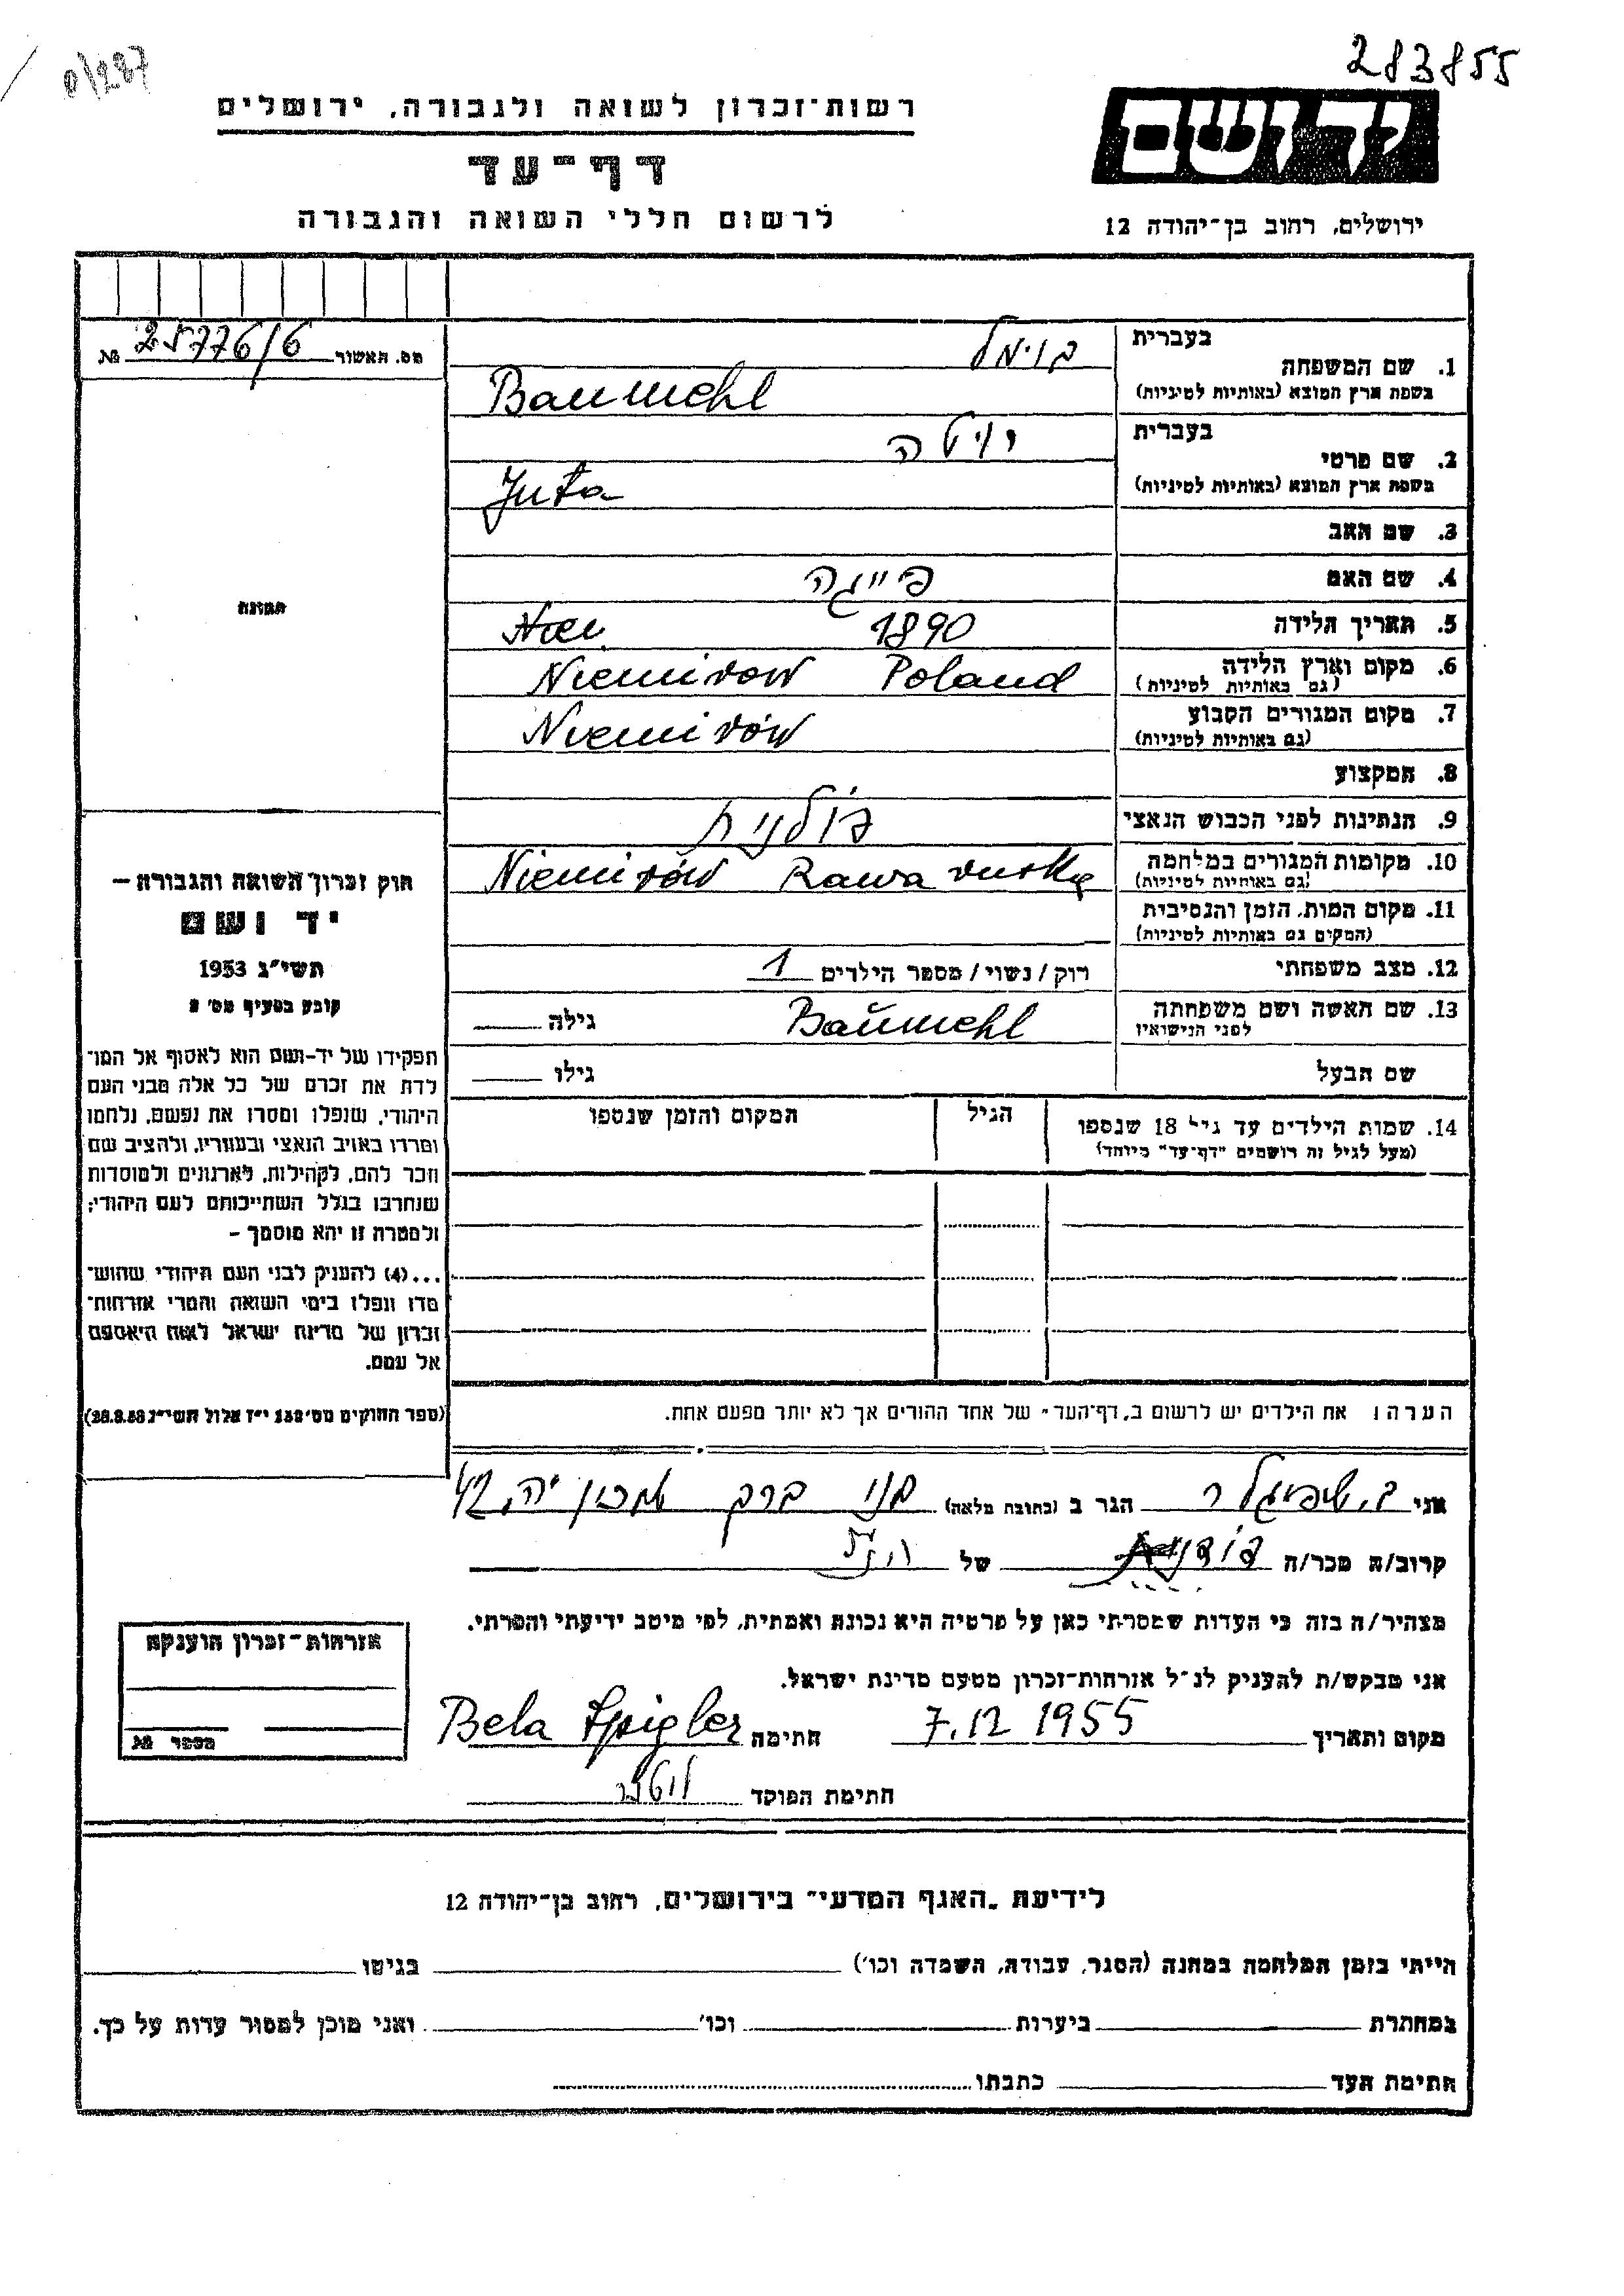 283855
0/287
רשות-זכרון לשואה ולגבורה, ירושלים
יד ושם
דף-עד
לרשום חללי השואה והגבורה
ירושלים, רחוב בן-יהודה 12
מס. תאשור 25776/6 №
1. שם המשפחה
בעברית
בוימל
בשפת ארץ המוצא (באותיות לטיניות)
Baumehl
2. שם פרטי
בעברית
יוטה
בשפת ארץ המוצא (באותיות לטיניות)
Juta
3. שם האב
4. שם האם פייגה
5. תאריך הלידה 1890
6. מקום וארץ הלידה
(גם באותיות לטיניות) Niemirow Poland
7. מקום המגורים הקבוע
(גם באותיות לטיניות) Niemirów
8. המקצוע
9. הנתינות לפני הכבוש הנאצי פולנית
10. מקומות המגורים במלחמה
(גם באותיות לטיניות) Niemirów Rawa ruska
11. מקום המות, הזמן והנסיבות
(המקום גם באותיות לטיניות)
12. מצב משפחתי רוק/נשוי/מספר הילדים 1
13. שם האשה ושם משפחתה
לפני הנישואין Baŭmehl גילה
שם הבעל גילו
14. שמות הילדים עד גיל 18 שנספו
(מעל לגיל זה רושמים "דף-עד" מיוחד)
הגיל
המקום והזמן שנספו
הערה: את הילדים יש לרשום ב"דף-העד" של אחד ההורים אך לא יותר מפעם אחת.
תמונה
חוק זכרון השואה והגבורה –
יד ושם
תשי"ג 1953
קובע בסעיף מס' 2
תפקידו של יד-ושם הוא לאסוף אל המו־
לדת את זכרם של כל אלה מבני העם
היהודי, שנפלו ומסרו את נפשם, נלחמו
ומרדו באויב הנאצי ובעוזריו, ולהציב שם
וזכר להם, לקהילות, לארגונים ולמוסדות
שנחרבו בגלל השתייכותם לעם היהודי;
ולמטרה זו יהא מוסמך –
...(4) להעניק לבני העם היהודי שהוש־
מדו ונפלו בימי השואה והמרי אזרחות־
זכרון של מדינת ישראל לאות היאספם
אל עמם.
(ספר החוקים מס' 132 י"ז אלול תשי"ג 28.8.53)
אני ב. שפיגלר הגר ב (כתובת מלאה) בני ברק שכון יה, 42
קרוב/ה מכר/ה של
מצהיר/ה בזה כי העדות שמסרתי כאן על פרטיה היא נכונה ואמתית, לפי מיטב ידיעתי והכרתי.
אני מבקש/ת להעניק לנ"ל אזרחות-זכרון מטעם מדינת ישראל.
מקום ותאריך 7.12 1955 חתימה Bela Spigler
חתימת הפוקד
אזרחות-זכרון הוענקה
מספר №
לידיעת "האגף המדעי" בירושלים, רחוב בן-יהודה 12
הייתי בזמן המלחמה במחנה (הסגר, עבודה, השמדה וכו') בגיטו
במחתרת ביערות וכו' ואני מוכן למסור עדות על כך.
חתימת העד כתבתו